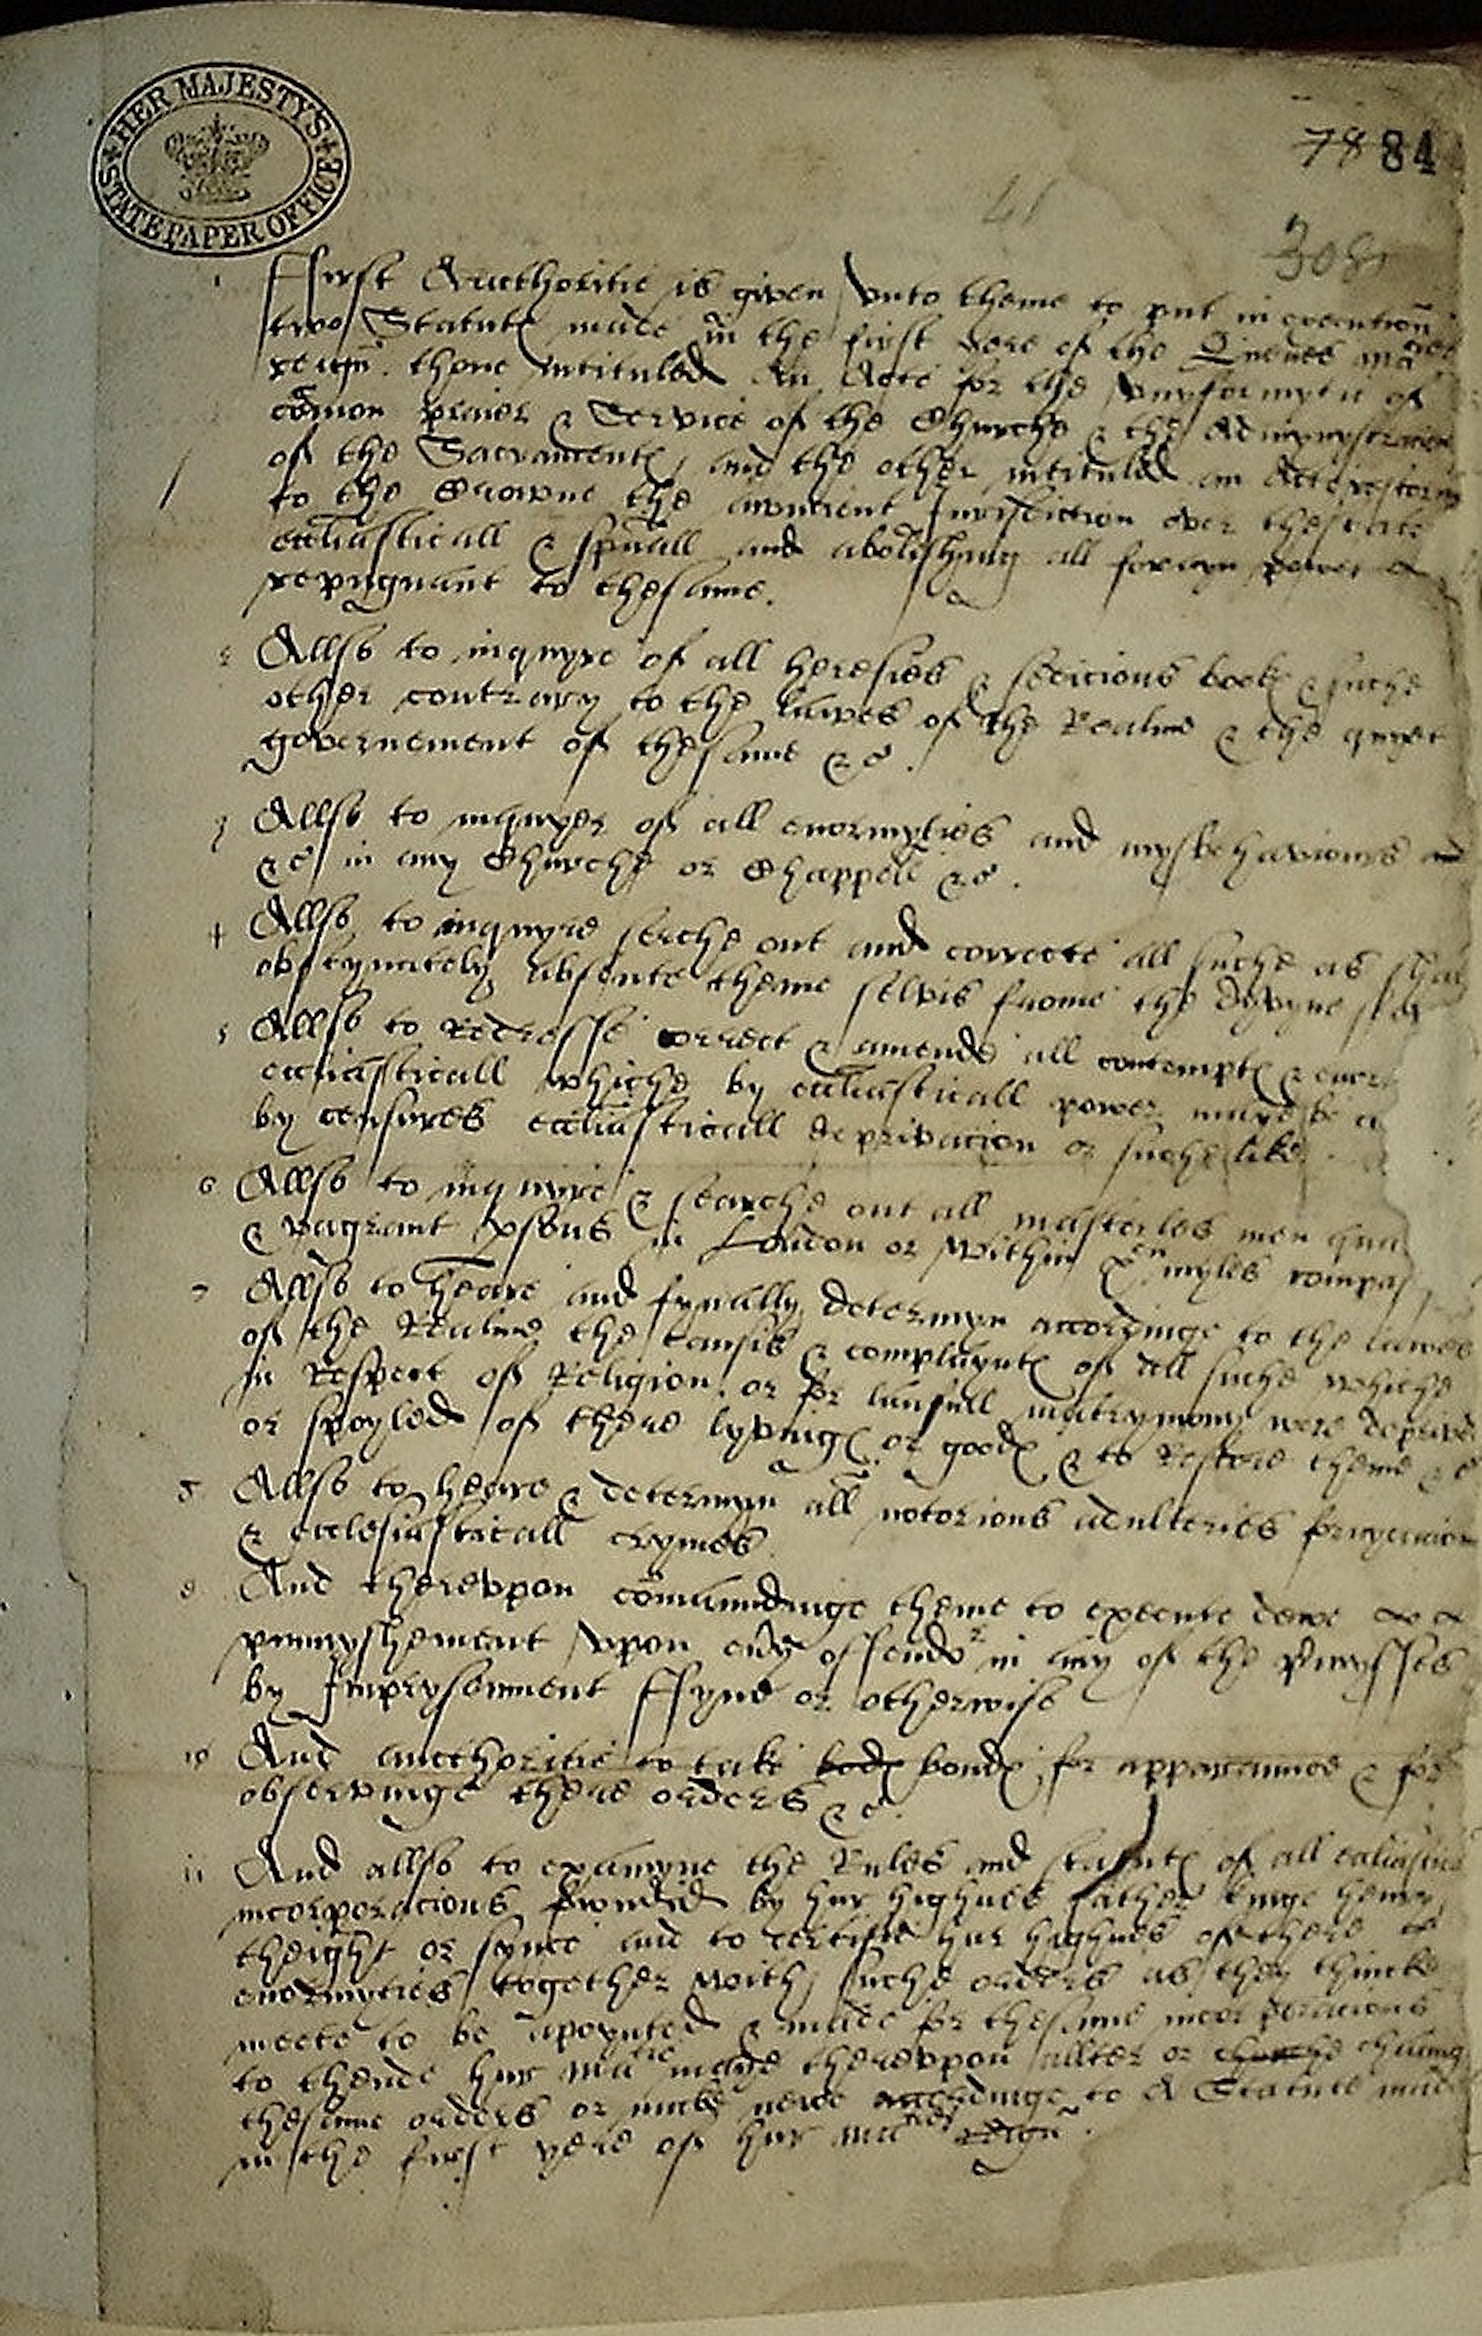 HER MAJESTY'S STATE PAPER OFFICE
78 84
41
308
1 Ffirst Aucthoritie is given vnto theme to put in execution
two Statutes made in the first yere of the Quenes maties
reign. thone intituled An Acte for the vnyformytie of
comon praier & Service of the Churche & the Admynystracion
of the Sacramentes, and the other intituled an Acte restoring
to the Crowne the auncient Jurisdiction over thestate
eccliasticall & spuall and abolishyng all foreyn power
repugnant to thesame.
2 Allso to inquyre of all heresies & sedicious bookes & suche
other contrary to the lawes of the Realme & the quyet
governement of thesame &c.
3 Allso to inquyer of all enormyties and mysbehaviours
&c in any Churche or Chappell &c.
4 Allso to inquyre serche out and correcte all suche as shal
obstynately absente theme selvis frome the devyne
5 Allso to Redresse correct & amende all contemptes &
eccliasticall whiche by eccliasticall power maye be
by censures eccliasticall deprivacion or suche like
6 Allso to inquyre & searche out all masterles men
& vagrant psons in London or within xen myles compas
7 Allso to heare and fynally determyn accordinge to the lawes
of the Realme the causis & complayntes of all suche whiche
in Respect of Religion or for laufull matrymony were deprived
or spoyled of there lyvinges or goodes & to Restore theme &c
8 Allso to heare & determyn all notorious adulteries fornycacions
& ecclesiasticall crymes
9 And therevpon comaundinge theme to execute dewe
punnyshement vpon eny offender in any of the pmysses
by Imprysonment Ffyne or otherwise
10 And aucthoritie to take bodes bondes for apparaunce & for
observinge there orders &c.
11 And allso to examyne the Rules and statutes of all
incorporacions founded by hur highnes father kinge henry
theight or synce and to certifie hur highnes of there
enormyties together with suche orders as they thincke
meete to be apoynted & made for thesame incorporacions
to thende hur matie maye therevpon allter or churche chaung
thesame orders or make newe accordinge to A Statute made
in the first yere of hur maties reign.